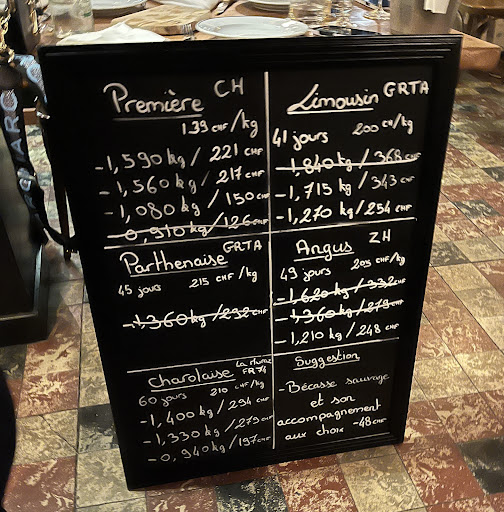 Première CH
139 CHF/kg
-1,590 kg / 221 CHF
-1,560 kg / 217 CHF
-1,080 kg / 150 CHF
-0,910 kg / 126 CHF
Limousin GRTA
41 jours 200 CHF/kg
-1,840 kg / 368 CHF
-1,715 kg / 343 CHF
-1,270 kg / 254 CHF
Parthenaise GRTA
45 jours 215 CHF/kg
-1,360 kg / 292 CHF
Angus ZH
49 jours 205 CHF/kg
-1,620 kg / 332 CHF
-1,360 kg / 279 CHF
-1,210 kg / 248 CHF
Charolaise FR74
60 jours 210 CHF/kg
-1,400 kg / 294 CHF
-1,330 kg / 279 CHF
-0,940 kg / 197 CHF
Suggestion
-Bécasse sauvage
et son
accompagnement
aux choix -48 CHF